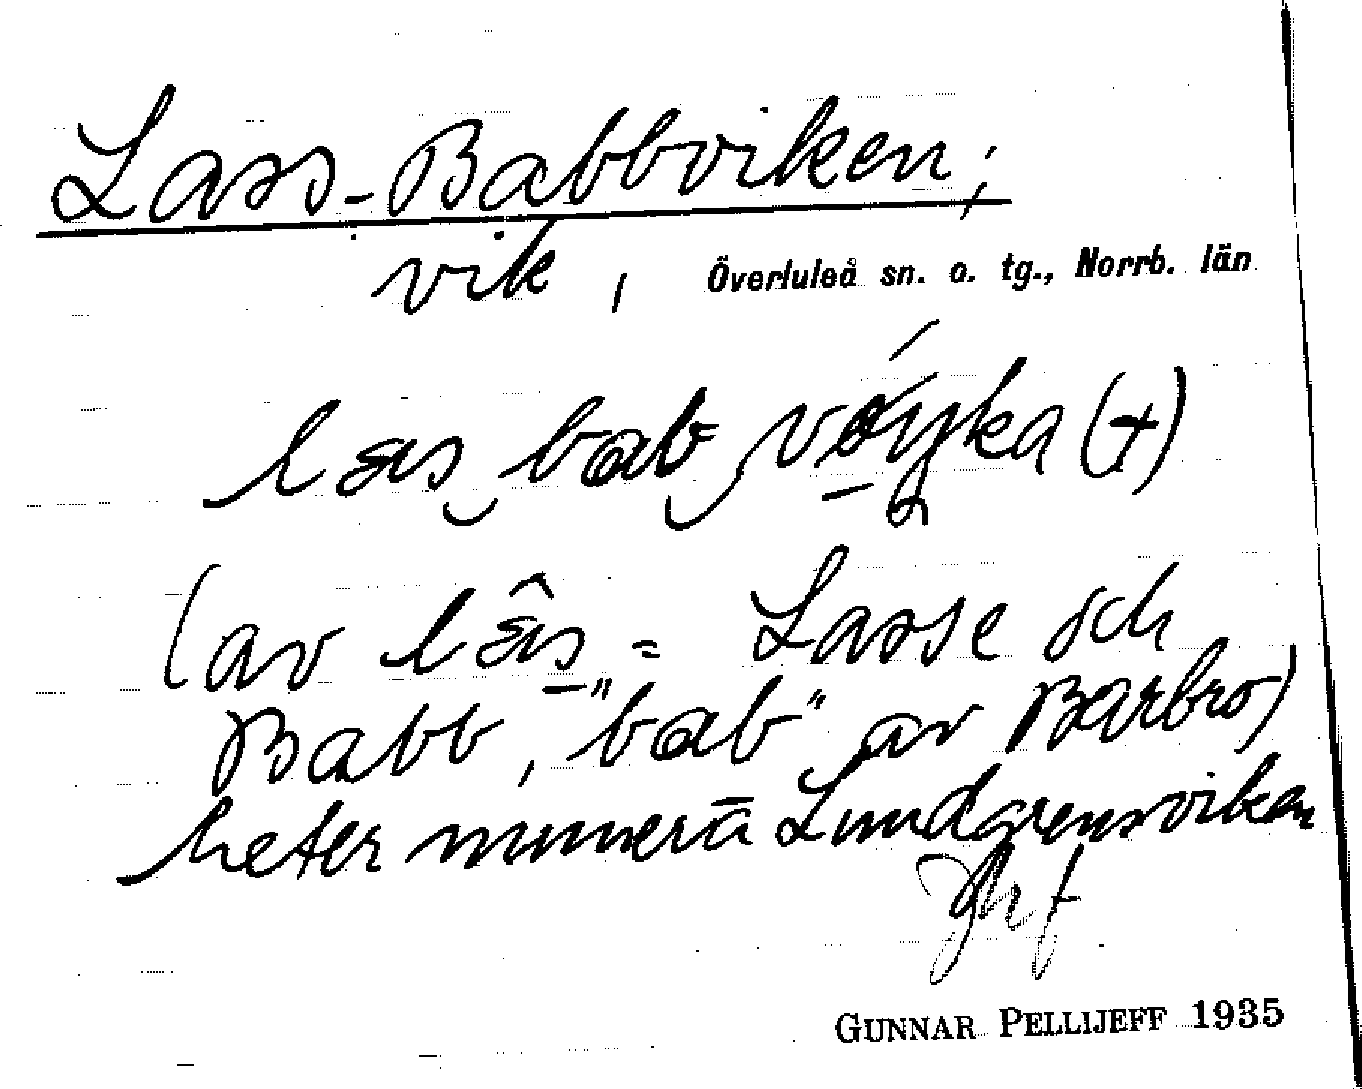 Lass-Babbviken;
vik, Överluleå sn. o. tg., Norrb. län
(+)
(av = Lasse och
Babb, "bab" av Barbro)
heter numera Lundgrensviken
GUNNAR PELLIJEFF 1935